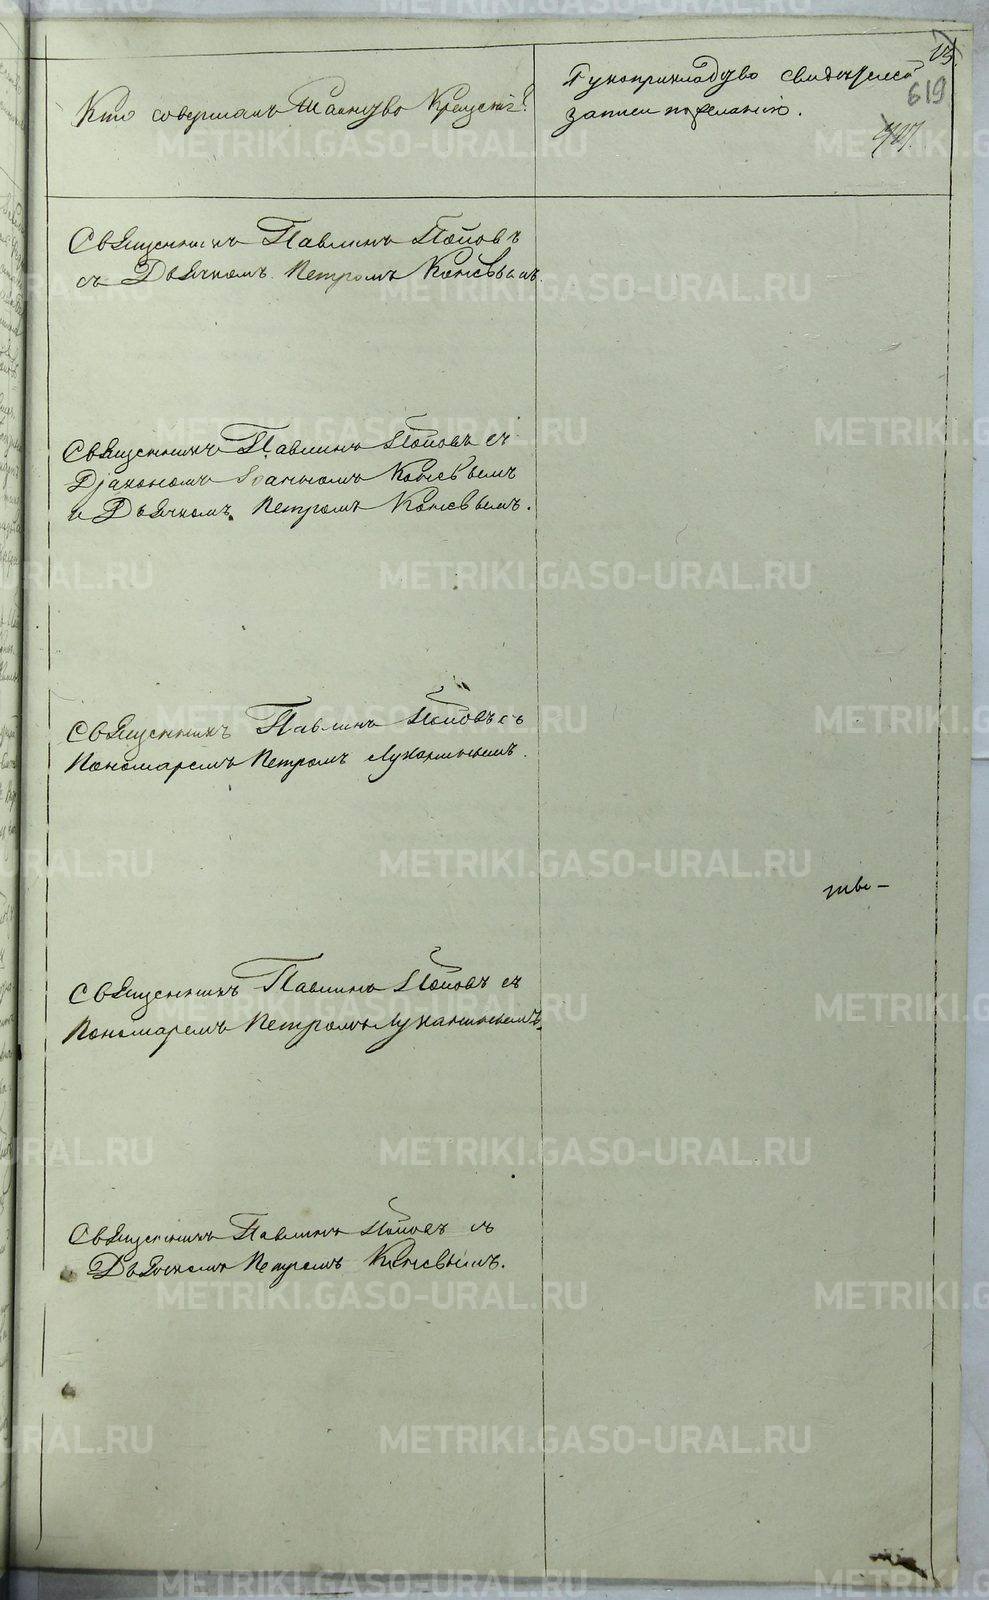 13.
619
Кто совершалъ Таинство Крещенія?
Рукоприкладство свидѣтелей
записи по желанію.
Священникъ Павлинъ Поповъ
съ Дьячкомъ Петромъ Коневымъ.
Священникъ Павлинъ Поповъ съ
Діакономъ Іоанномъ Коневымъ
и Дьячкомъ Петромъ Коневымъ.
Священникъ Павлинъ Поповъ съ
Пономаремъ Петромъ Луканинымъ.
Священникъ Павлинъ Поповъ съ
Пономаремъ Петромъ Луканинымъ.
тве-
Священникъ Павлинъ Поповъ съ
Дьячкомъ Петромъ Коневымъ.
METRIKI.GASO-URAL.RU